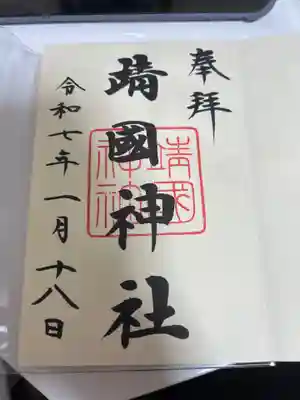 奉拝
靖國神社
靖国
神社
令和七年一月十八日